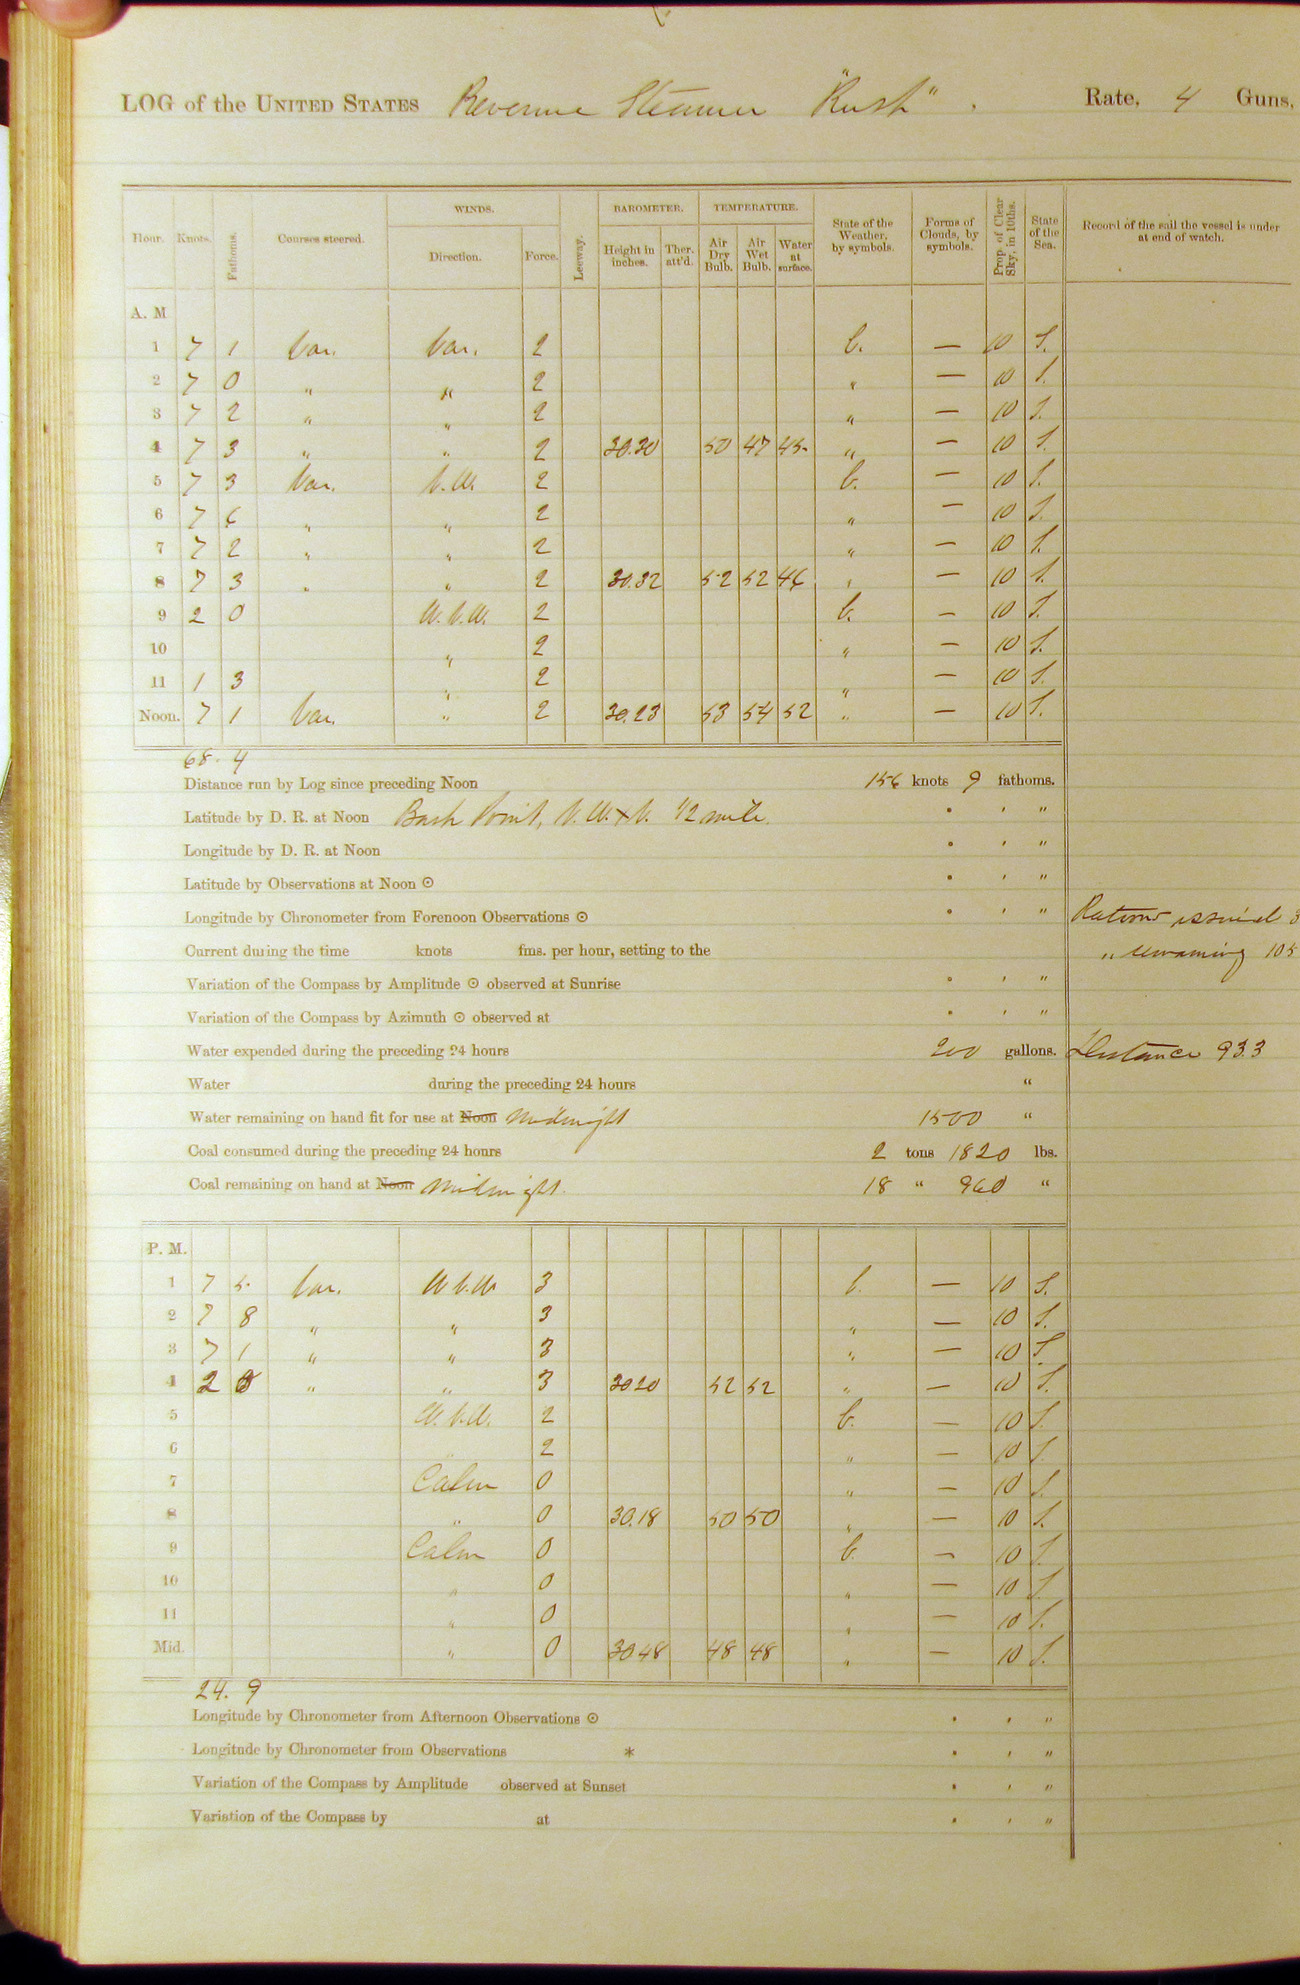 LOG of the UNITED STATES Revenue Steamer "Rush". Rate, 4 Guns,
Hour. Knots. Fathoms. Courses steered. WINDS. Direction. Force. Leeway. BAROMETER. Height in inches. Ther. att'd. TEMPERATURE. Air Dry Bulb. Air Wet Bulb. Water at surface. State of the Weather, by symbols. Forms of Clouds, by symbols. Prop. of Clear Sky, in 10ths. State of the Sea. Record of the sail the vessel is under at end of watch.
A. M
1 7 1 Var. Var. 2 b. — 10 S.
2 7 0 " " 2 " — 10 S.
3 7 2 " " 2 " — 10 S.
4 7 3 " " 2 30.30 50 47 45 " — 10 S.
5 7 3 Var. N.W. 2 b. — 10 S.
6 7 6 " " 2 " — 10 S.
7 7 2 " " 2 " — 10 S.
8 7 3 " " 2 30.32 52 52 46 " — 10 S.
9 2 0 W.N.W. 2 b. — 10 S.
10 " 2 " — 10 S.
11 1 3 " 2 " — 10 S.
Noon. 7 1 Var. " 2 30.23 53 54 52 " — 10 S.
68. 4
Distance run by Log since preceding Noon 156 knots 9 fathoms.
Latitude by D. R. at Noon Point, N.W.xN. 1/2 mile. ° ' "
Longitude by D. R. at Noon ° ' "
Latitude by Observations at Noon ⊙ ° ' "
Longitude by Chronometer from Forenoon Observations ⊙ ° ' " Rations issued 3
Current during the time knots fms. per hour, setting to the " remaining 105
Variation of the Compass by Amplitude ⊙ observed at Sunrise ° ' "
Variation of the Compass by Azimuth ⊙ observed at ° ' "
Water expended during the preceding 24 hours 200 gallons. Distance 93.3
Water during the preceding 24 hours "
Water remaining on hand fit for use at Noon Midnight 1500 "
Coal consumed during the preceding 24 hours 2 tons 1820 lbs.
Coal remaining on hand at Noon Midnight. 18 " 960 "
P. M.
1 7 5 Var. W.N.W. 3 b. — 10 S.
2 7 8 " " 3 " — 10 S.
3 7 1 " " 3 " — 10 S.
4 2 " " 3 30.20 52 52 " — 10 S.
5 W.N.W. 2 b. — 10 S.
6 " 2 " — 10 S.
7 Calm 0 " — 10 S.
8 " 0 30.18 50 50 " — 10 S.
9 Calm 0 b. — 10 S.
10 " 0 " — 10 S.
11 " 0 " — 10 S.
Mid. " 0 30.48 48 48 " — 10 S.
24. 9
Longitude by Chronometer from Afternoon Observations ⊙ ° ' "
Longitude by Chronometer from Observations * ° ' "
Variation of the Compass by Amplitude observed at Sunset ° ' "
Variation of the Compass by at ° ' "